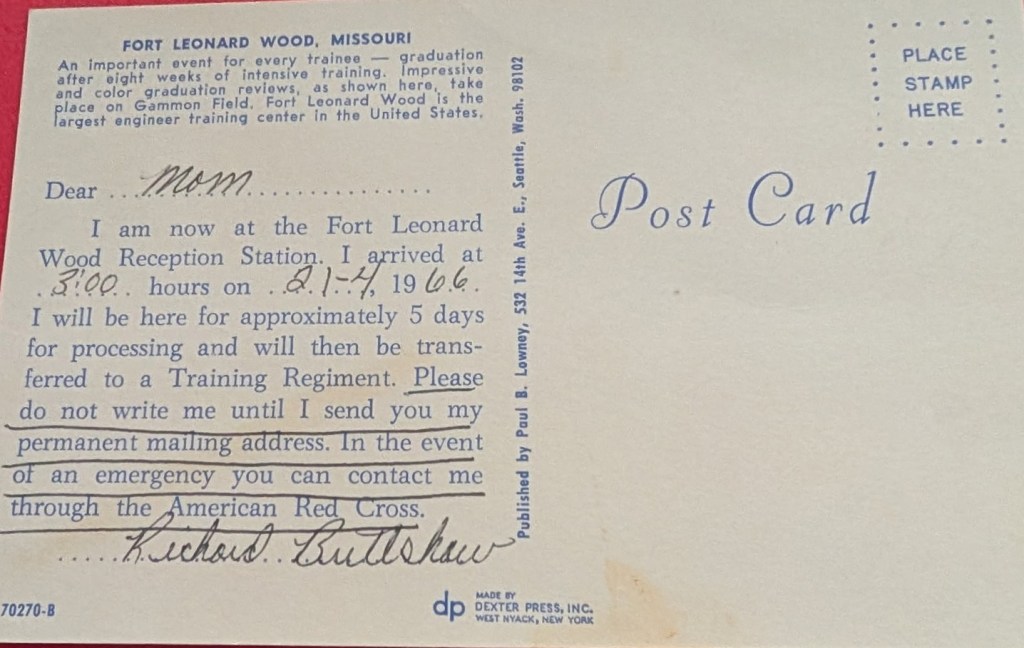 FORT LEONARD WOOD, MISSOURI
An important event for every trainee — graduation
after eight weeks of intensive training. Impressive
and color graduation reviews, as shown here, take
place on Gammon Field. Fort Leonard Wood is the
largest engineer training center in the United States.
Dear ... Mom ..............
I am now at the Fort Leonard
Wood Reception Station. I arrived at
. 3:00 . . hours on . . 21-4, 1966.
I will be here for approximately 5 days
for processing and will then be trans-
ferred to a Training Regiment. Please
do not write me until I send you my
permanent mailing address. In the event
of an emergency you can contact me
through the American Red Cross.
..... Richard Buttshaw
70270-B
Published by Paul B. Lowney, 532 14th Ave. E., Seattle, Wash. 98102
dp
MADE BY
DEXTER PRESS, INC.
WEST NYACK, NEW YORK
Post Card
PLACE
STAMP
HERE